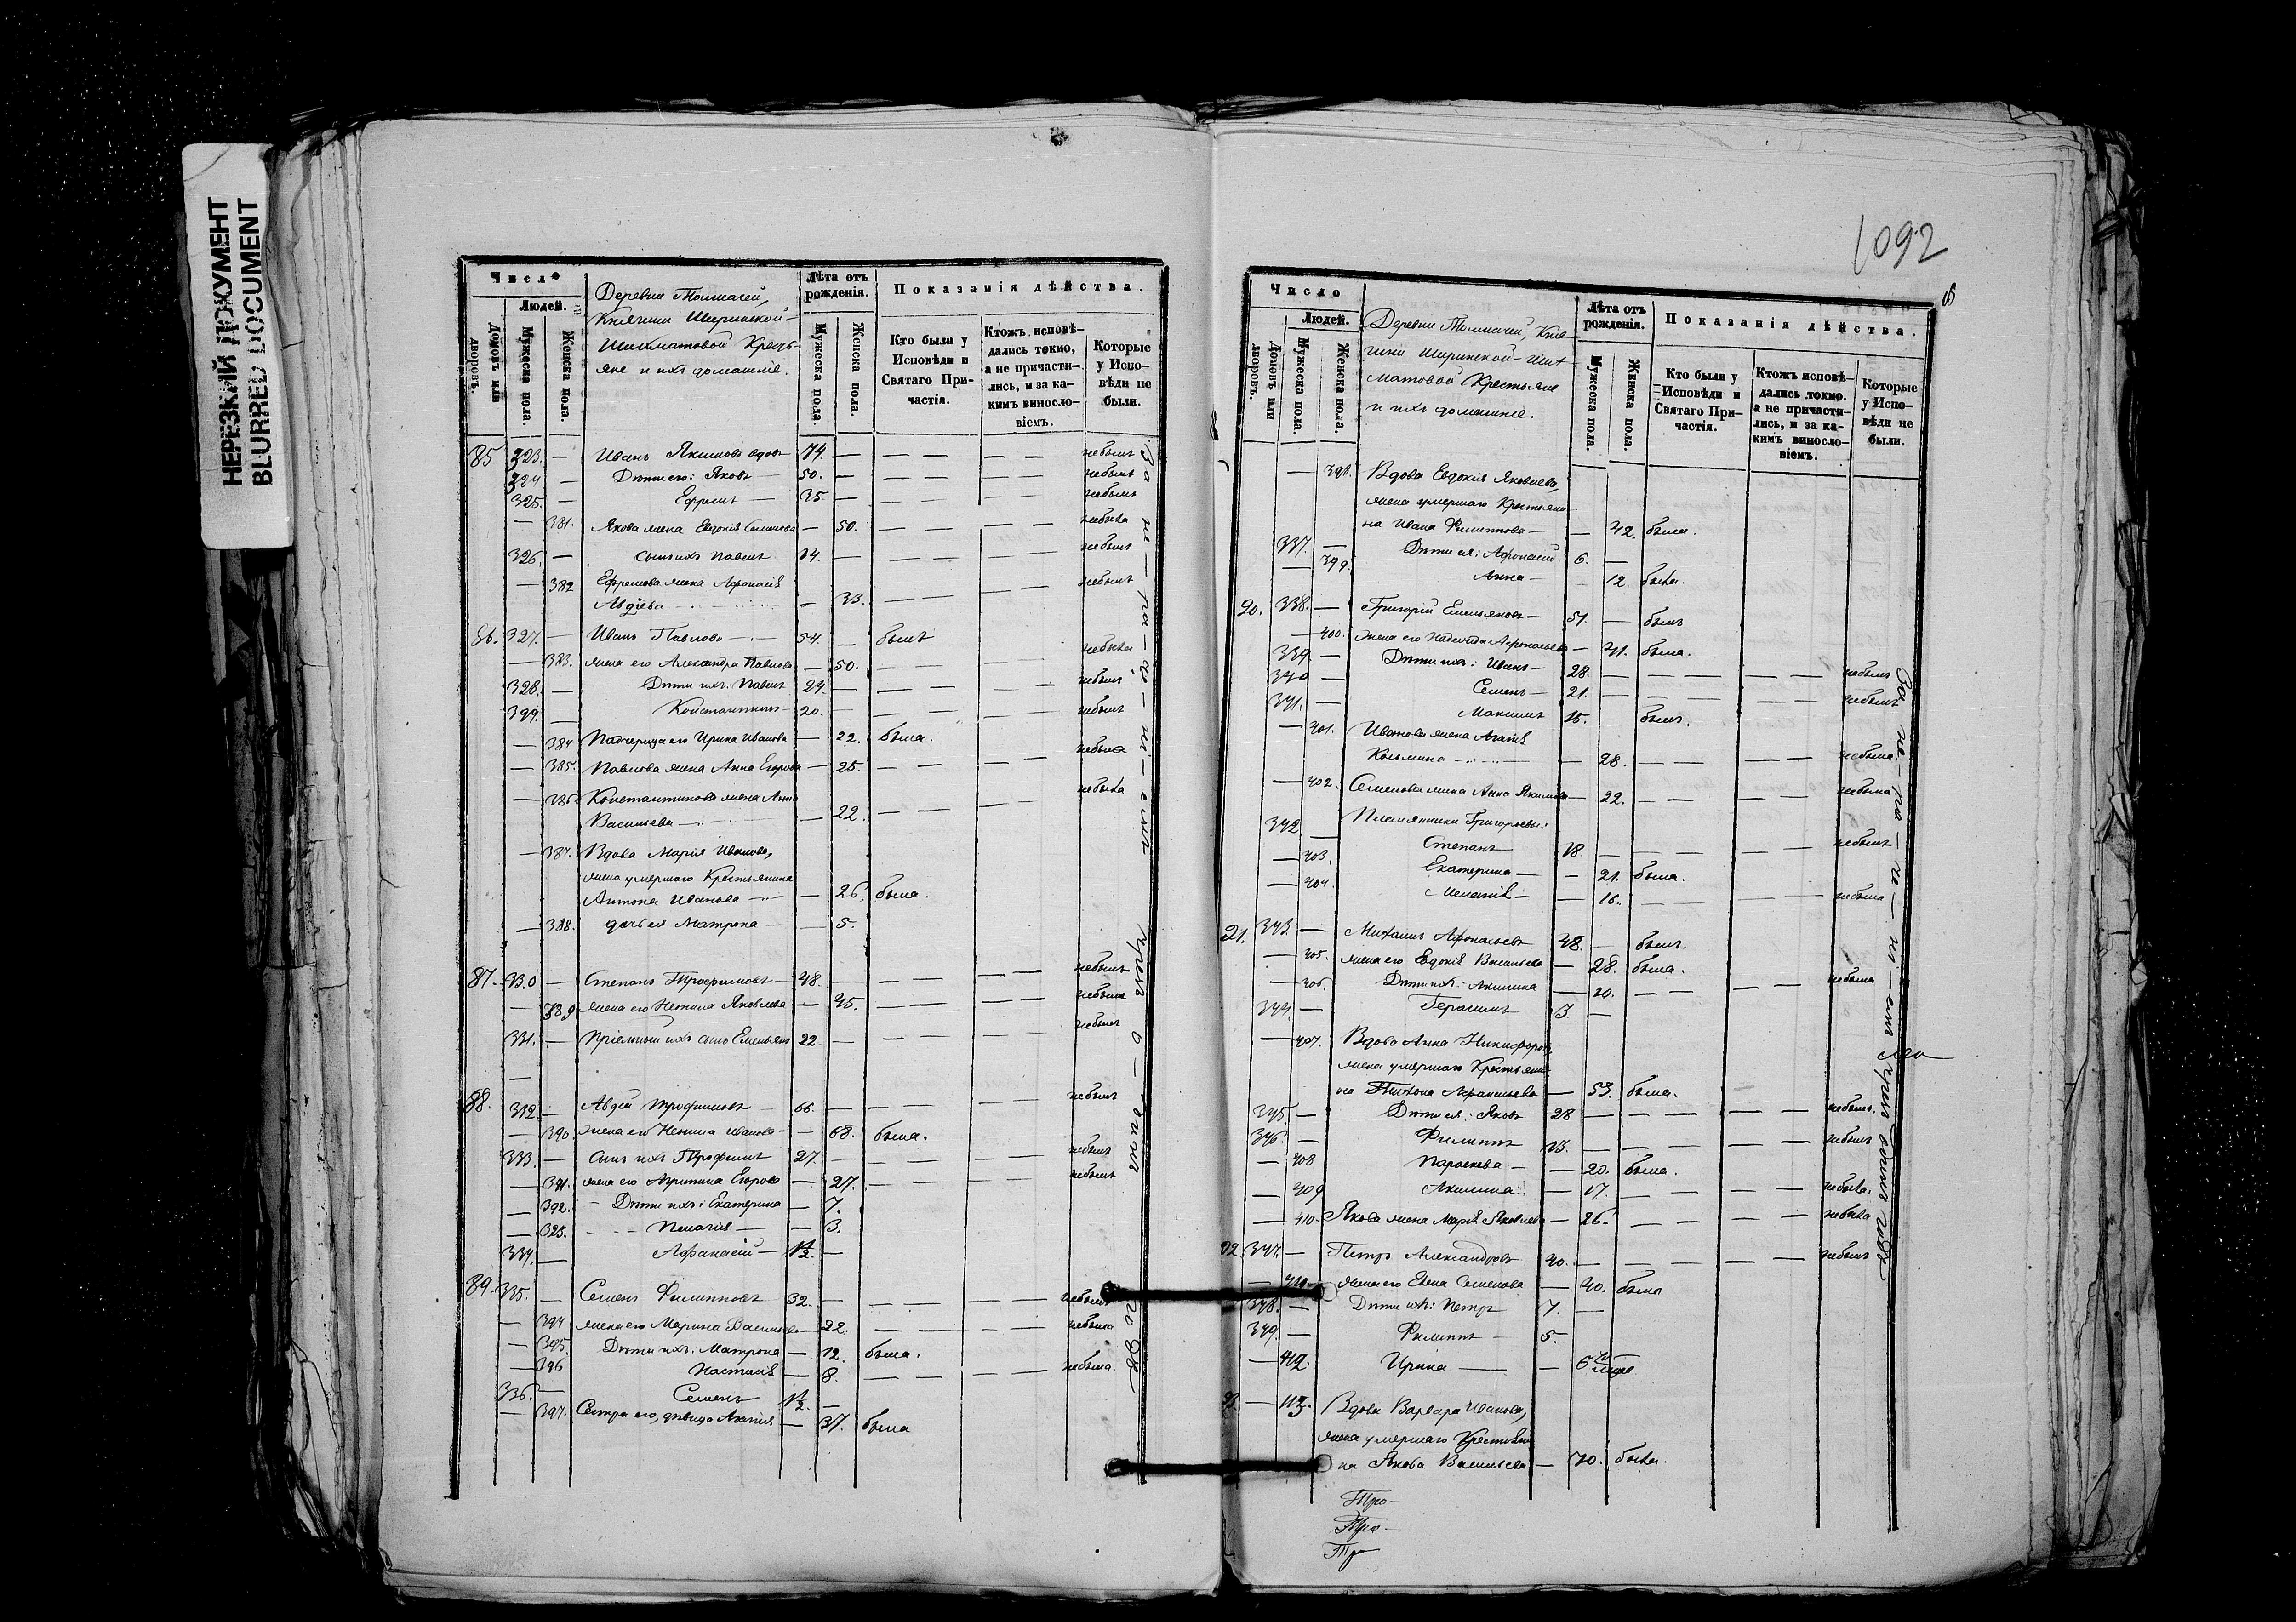 НЕРЕЗКИЙ ДОКУМЕНТ
BLURRED DOCUMENT
Число
Людей.
Домовъ или дворовъ.
Мужеска пола.
Женска пола.
Деревни
Княгини Ширинской-
Шихматовой Кресть-
яне и ихъ домашніе.
Лѣта отъ рожденія.
Мужеска пола.
Женска пола.
Показанія дѣйства.
Кто были у Исповѣди и Святаго Причастія.
Ктожъ исповѣдались токмо, а не причастились, и за какимъ винословіемъ.
Которые у Исповѣди не были.
85 323. — Иванъ Якимовъ вдовъ 74. — небылъ
324 — Дѣти его: Яковъ — 50. — небылъ
325. — Ефремъ — 35 — небылъ
— 381. Якова жена Евдокія Семенова — 50. небыла
326. — сынъ ихъ Павелъ 14. — небылъ
— 382 Ефремова жена Афонасія
Авдѣева — 33.
86. 327. — Иванъ Павловъ — 54. — былъ
— 383. жена его Александра Павлова — 50. небыла
328. — Дѣти ихъ: Павелъ 24. — небылъ
399. — Константинъ — 20. — небылъ
— 384 Падчерица его Ирина Иванова — 22. была.
— 385. Павлова жена Анна Егорова — 25. небыла
— 386 Константинова жена Анна небыла
Васильева — 22.
— 387. Вдова Марія Иванова,
жена умершаго Крестьянина
Антона Иванова — 26. была.
— 388. дочь ея Матрона — 5.
87. 330 — Степанъ Трофимовъ — 48. — небылъ
— 389 жена его Яковлева — 45. небыла
331. — Пріемный ихъ сынъ Емельянъ 22 — небылъ
88. 332 — Авдѣй Трофимовъ — 66. — небылъ
— 390. жена его Иванова — 68. была.
333. — сынъ ихъ Трофимъ 27. — небылъ
— 391. жена его Егорова — 27.
— 392. Дѣти ихъ: Екатерина — 7.
— Пелагія — 3.
334. — Афанасій — 1/2. —
89. 335. — Семенъ Филипповъ 32. — небылъ
— 394 жена его Марина Васильева — 22. небыла
— 395. Дѣти ихъ: Матрона — 12. была.
— 396 Настасія — 8. небыла.
336. — Семенъ 1/2. —
— 397. Сестра его, дѣвица Агапія — 37. была
1092
Число
Людей.
Домовъ или дворовъ.
Мужеска пола.
Женска пола.
Деревни Кня-
гини Ширинской-Ших
матовой Крестьяне
и ихъ домашніе.
Лѣта отъ рожденія.
Мужеска пола.
Женска пола.
Показанія дѣйства.
Кто были у Исповѣди и Святаго Причастія.
Ктожъ исповѣдались токмо, а не причастились, и за какимъ винословіемъ.
Которые у Исповѣди не были.
— 398. Вдова Евдокія Яковлева,
жена умершаго Крестьяни
на Ивана Филиппова — 42. была.
337. — Дѣти ея: Афонасій 6. —
— 399. Анна — 12. была.
90. 338. — Григорій Емельяновъ — 51. — былъ
— 400. жена его Надежда Афонасьева — 41. была.
339. — Дѣти ихъ: Иванъ — 28. — небылъ
340 — Семенъ — 21. — небылъ
341. — Максимъ 15. былъ.
— 401. Иванова жена Агапія
Козьмина — 28. небыла
— 402. Семенова жена Анна Якимова — 22. небыла
Племянники Григорьевы:
342 — Степанъ 18. — небылъ
— 403. Екатерина — 21. была.
— 404. — 16. небыла
91. 343 — Михаилъ Афонасьевъ 48. — былъ.
— 405. жена его Евдокія Васильева — 28. была.
— 406. Дѣти ихъ: Акилина — 10. небыла
344. — Герасимъ 3. —
— 407. Вдова Анна Никифорова
жена умершаго Крестьяни
на Тихона Афанасьева — 53. была.
345. — Дѣти ея: Яковъ 28 — небылъ.
346. — Филиппъ 13. — небылъ
— 408 Параскева — 20. была.
— 409 Акилина: — 17. небыла.
— 410. Якова жена Марія Яковлева — 26. небыла
92. 347. — Петръ Александровъ 40. — небылъ
— 411 жена его Елена Семенова — 40. была
348. — Дѣти ихъ: Петръ 7. —
349. — Филиппъ — 5.
— 412. Ирина — 6
93. — 413. Вдова Варвара Иванова,
жена умершаго Крестьяни
на Якова Васильева — 70. была.
Тро-
Тро-
Тро